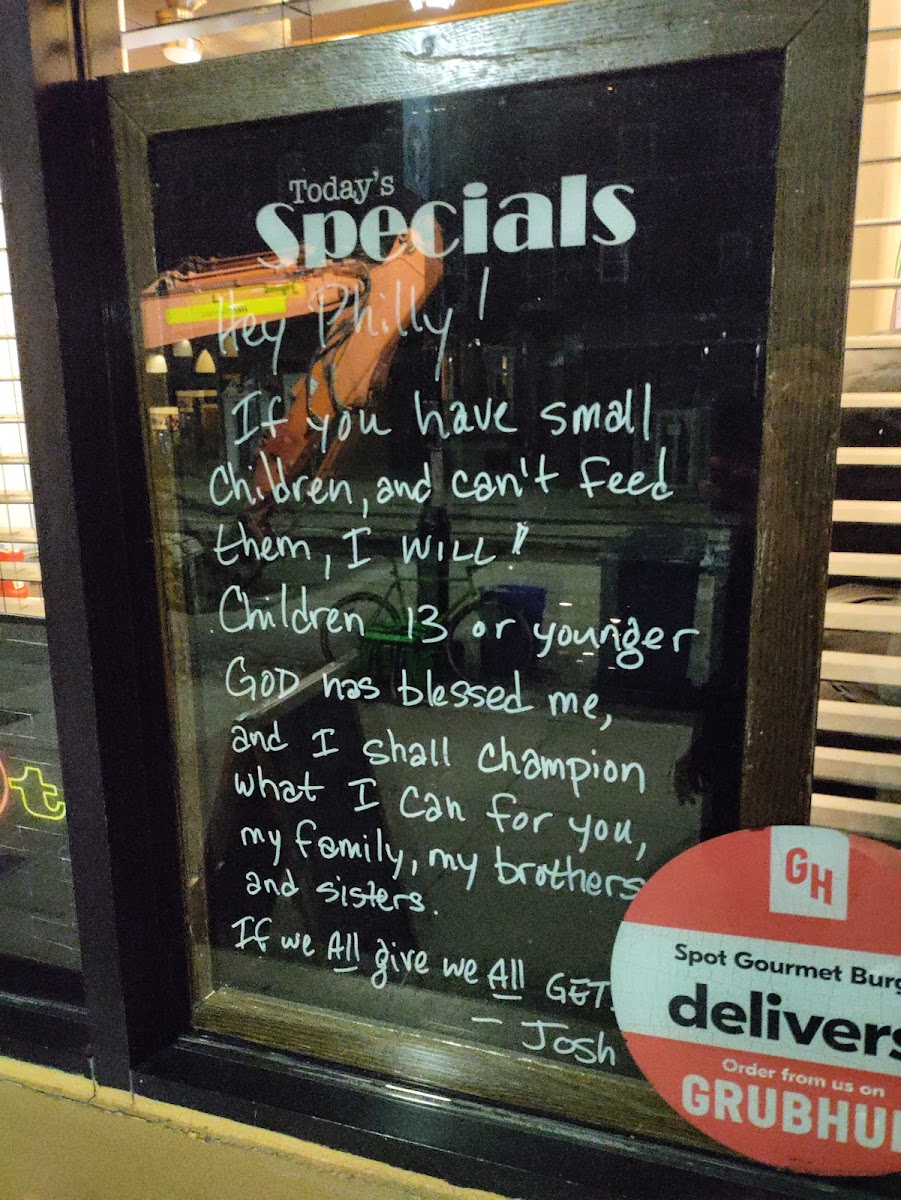 Today's
Specials
Hey Philly!
If you have small
children, and can't feed
them, I WILL!!
Children 13 or younger
GOD has blessed me,
and I shall champion
what I can for you,
my family, my brothers
and sisters.
If we All give we All GET.
- Josh
GH
Spot Gourmet Burg
delivers
Order from us on
GRUBHU
t